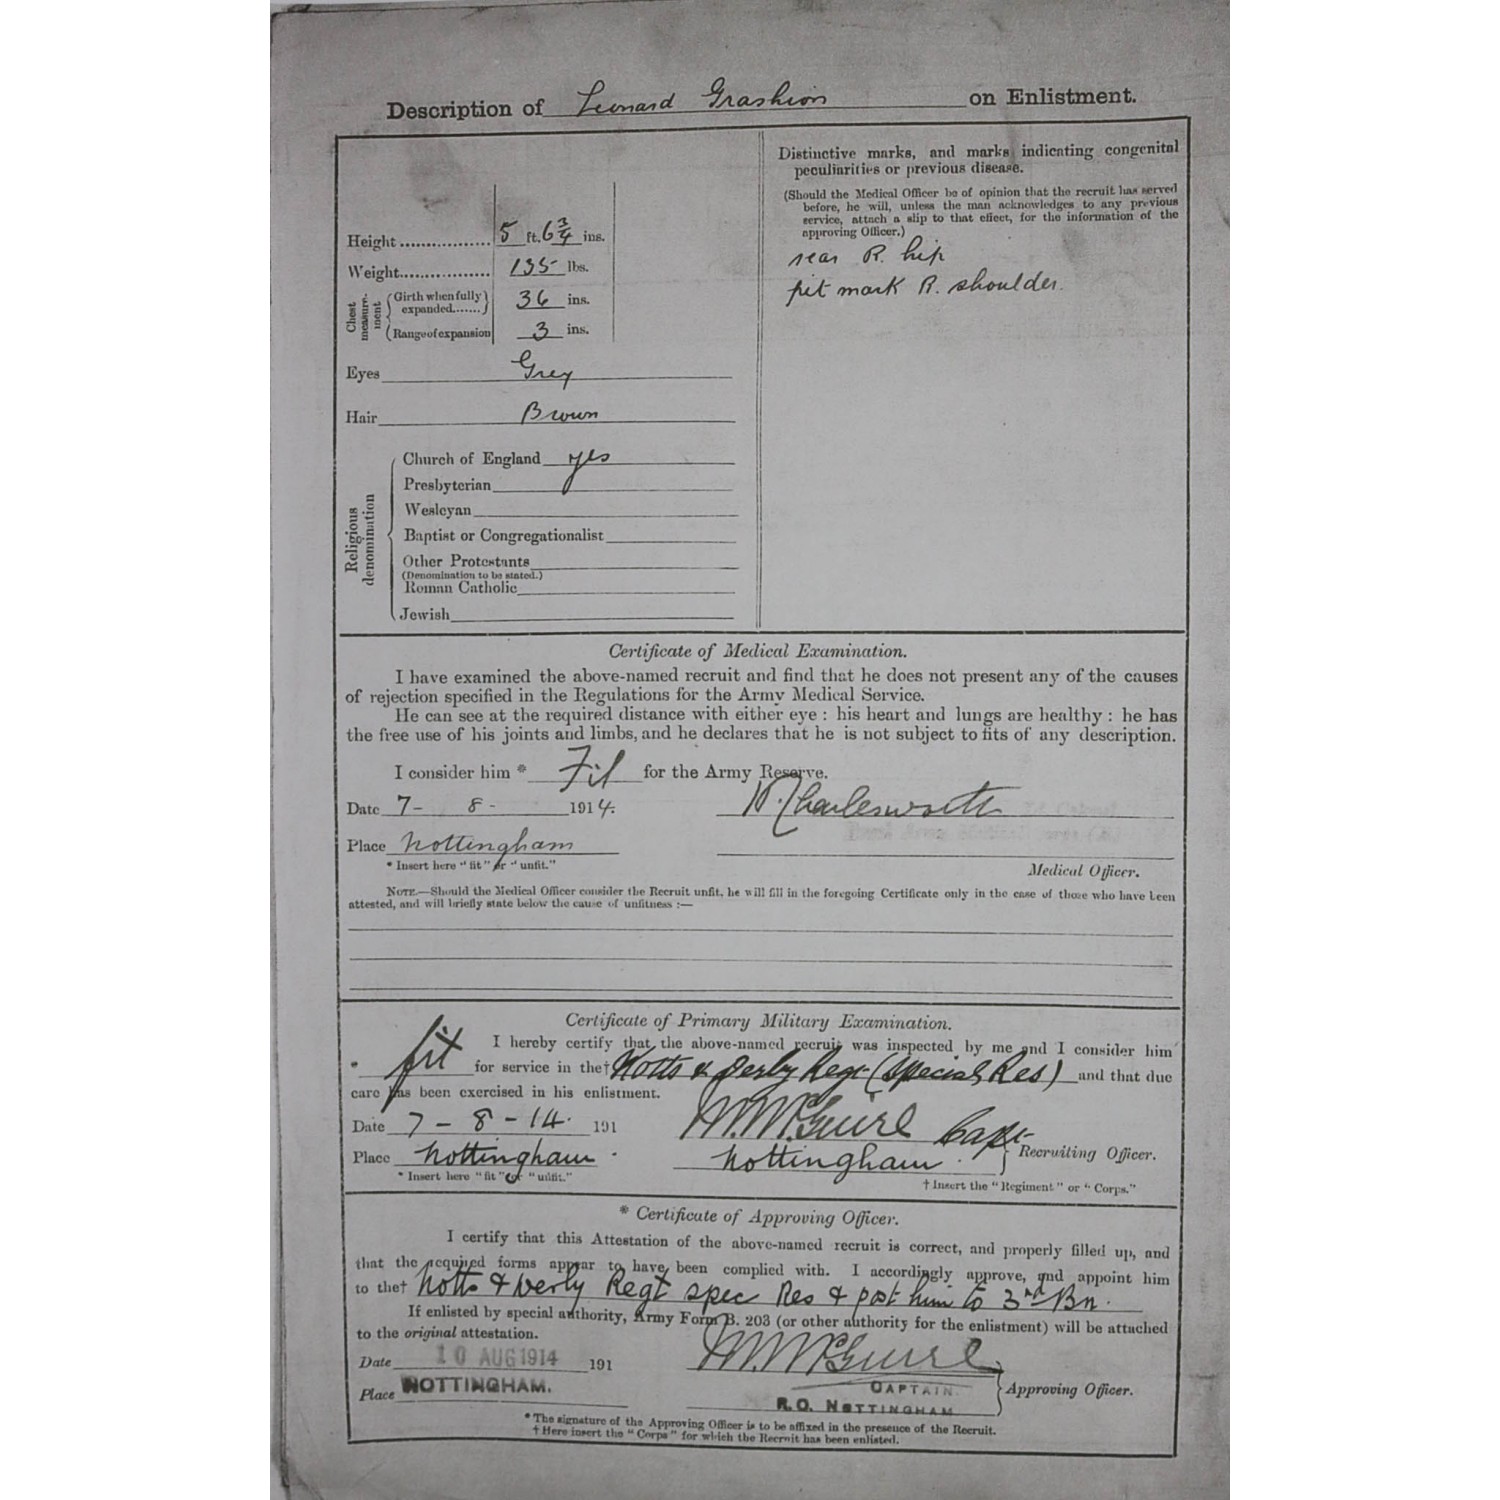 Description of Leonard Grashion on Enlistment.
Distinctive marks, and marks indicating congenital
peculiarities or previous disease.
(Should the Medical Officer be of opinion that the recruit has served
before, he will, unless the man acknowledges to any previous
service, attach a slip to that effect, for the information of the
approving Officer.)
scar R. hip
pit mark R. shoulder.
Height.................. 5 ft. 6 3/4 ins.
Weight.................. 135 lbs.
Chest measure-ment
Girth when fully
expanded....... 36 ins.
Range of expansion 3 ins.
Eyes Grey
Hair Brown
Religious denomination
Church of England yes
Presbyterian
Wesleyan
Baptist or Congregationalist
Other Protestants
(Denomination to be stated.)
Roman Catholic
Jewish
Certificate of Medical Examination.
I have examined the above-named recruit and find that he does not present any of the causes
of rejection specified in the Regulations for the Army Medical Service.
He can see at the required distance with either eye : his heart and lungs are healthy : he has
the free use of his joints and limbs, and he declares that he is not subject to fits of any description.
I consider him * Fit for the Army Reserve.
Date 7- 8- 1914. Charlesworth
Place Nottingham
* Insert here "fit" or "unfit."
Medical Officer.
NOTE.—Should the Medical Officer consider the Recruit unfit, he will fill in the foregoing Certificate only in the case of those who have been
attested, and will briefly state below the cause of unfitness :—
Certificate of Primary Military Examination.
I hereby certify that the above-named recruit was inspected by me and I consider him
* fit for service in the† Notts & Derby Regt (Special Res) and that due
care has been exercised in his enlistment.
Date 7-8-14. 191 M. McGuire Capt
Place Nottingham. Nottingham. } Recruiting Officer.
* Insert here "fit" or "unfit." † Insert the "Regiment" or "Corps."
* Certificate of Approving Officer.
I certify that this Attestation of the above-named recruit is correct, and properly filled up, and
that the required forms appear to have been complied with. I accordingly approve, and appoint him
to the† Notts & Derby Regt spec Res & post him to 3rd Bn.
If enlisted by special authority, Army Form B. 203 (or other authority for the enlistment) will be attached
to the original attestation.
Date 10 AUG 1914 191 M. McGuire
Place NOTTINGHAM. CAPTAIN. } Approving Officer.
R.O. NOTTINGHAM
* The signature of the Approving Officer is to be affixed in the presence of the Recruit.
† Here insert the "Corps" for which the Recruit has been enlisted.